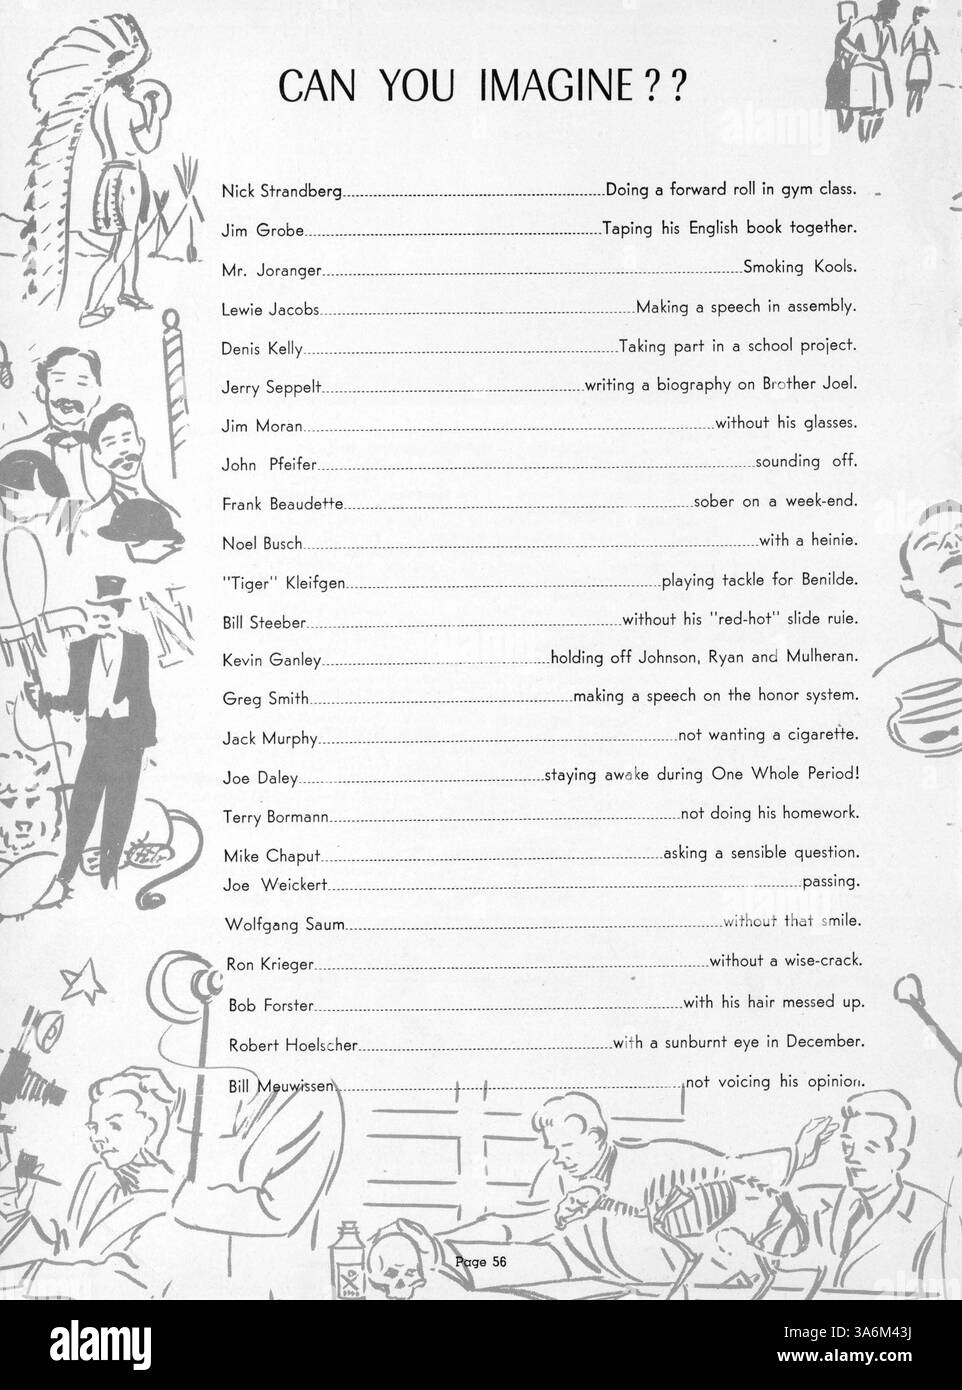 CAN YOU IMAGINE??
Nick Strandberg........Doing a forward roll in gym class.
Jim Grobe........Taping his English book together.
Mr. Joranger........Smoking Kools.
Lewie Jacobs........Making a speech in assembly.
Denis Kelly........Taking part in a school project.
Jerry Seppelt........writing a biography on Brother Joel.
Jim Moran........without his glasses.
John Pfeifer........sounding off.
Frank Beaudette........sober on a week-end.
Noel Busch........with a heinie.
"Tiger" Kleifgen........playing tackle for Benilde.
Bill Steeber........without his "red-hot" slide rule.
Kevin Ganley........holding off Johnson, Ryan and Mulheran.
Greg Smith........making a speech on the honor system.
Jack Murphy........not wanting a cigarette.
Joe Daley........staying awake during One Whole Period!
Terry Bormann........not doing his homework.
Mike Chaput........asking a sensible question.
Joe Weickert........passing.
Wolfgang Saum........without that smile.
Ron Krieger........without a wise-crack.
Bob Forster........with his hair messed up.
Robert Hoelscher........with a sunburnt eye in December.
Bill Meuwissen........not voicing his opinion.
Page 56
alamy
Image ID: 3A6M43J
www.alamy.com